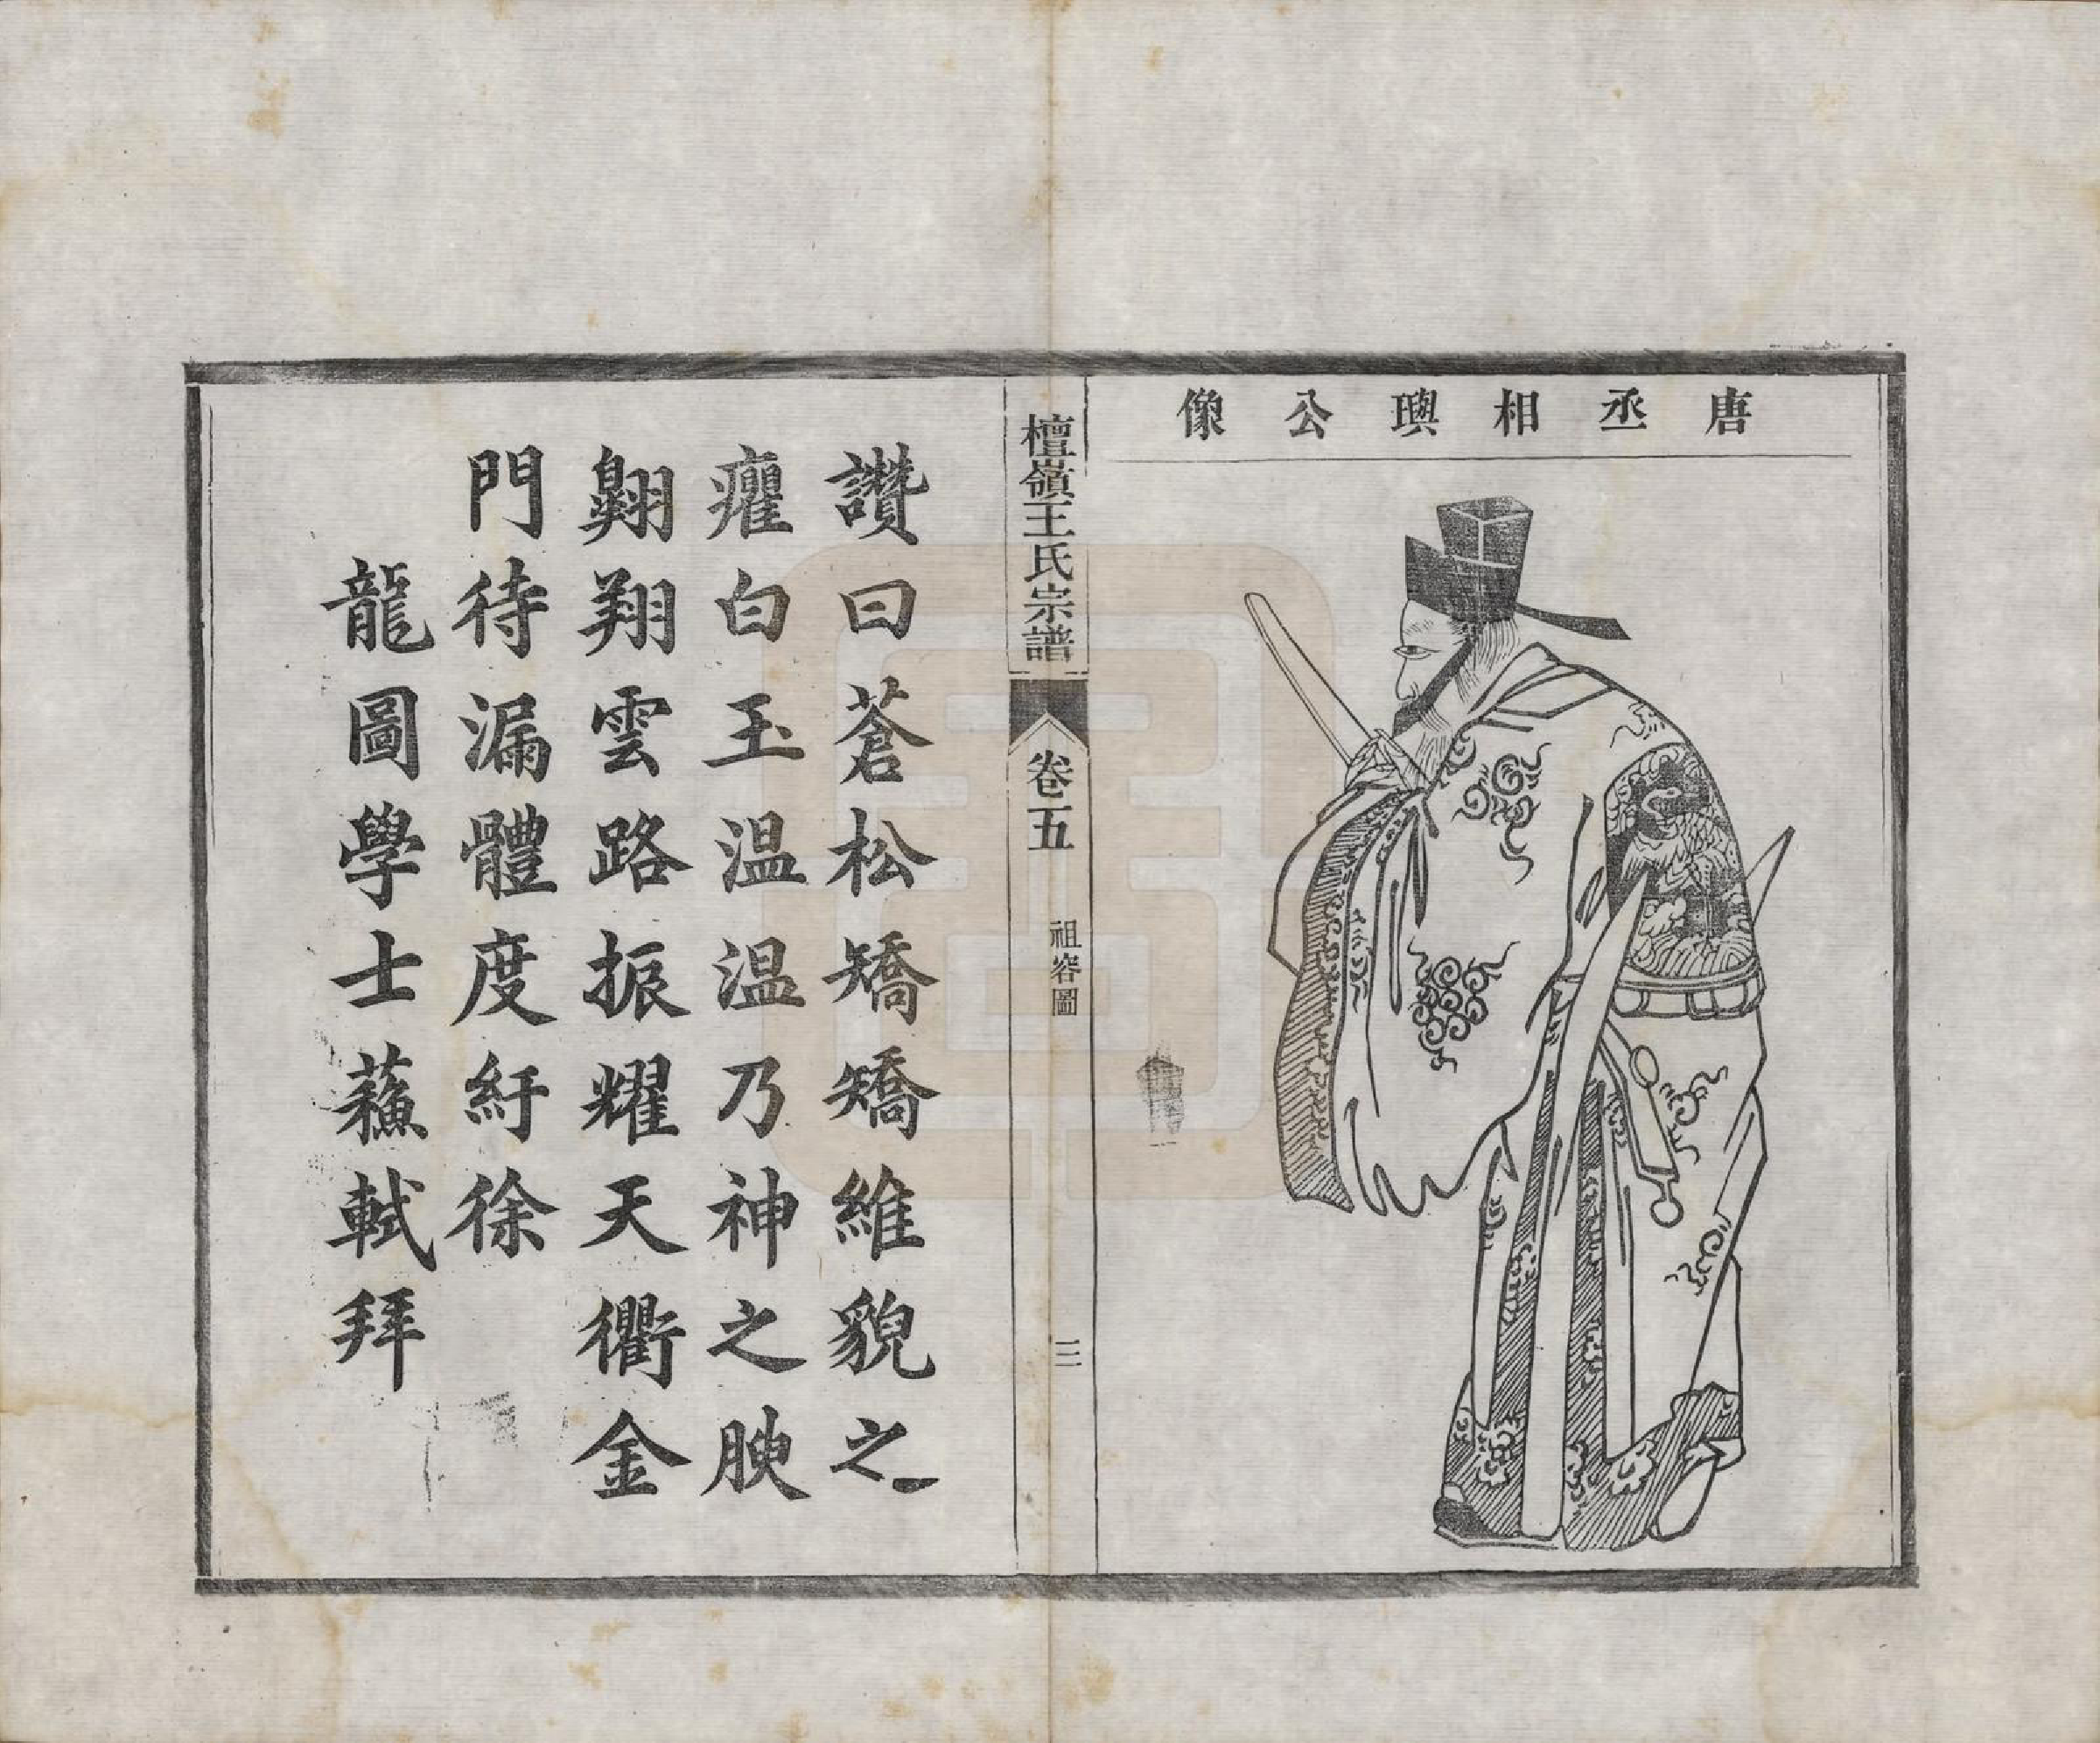 唐丞相璵公像
檀嶺王氏宗譜
卷五
祖容圖
三
讚曰蒼松矯矯維貌之
癯白玉温温乃神之腴
翺翔雲路振耀天衢金
門待漏體度紆徐
龍圖學士蘓軾拜